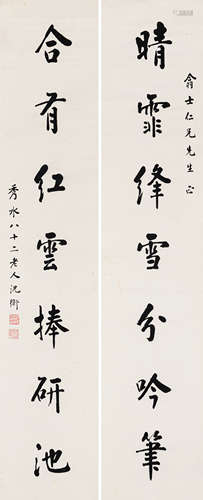 翕士仁兄先生正
晴霏絳雪分吟筆
合有紅雲捧研池
秀水八十二老人沈衛